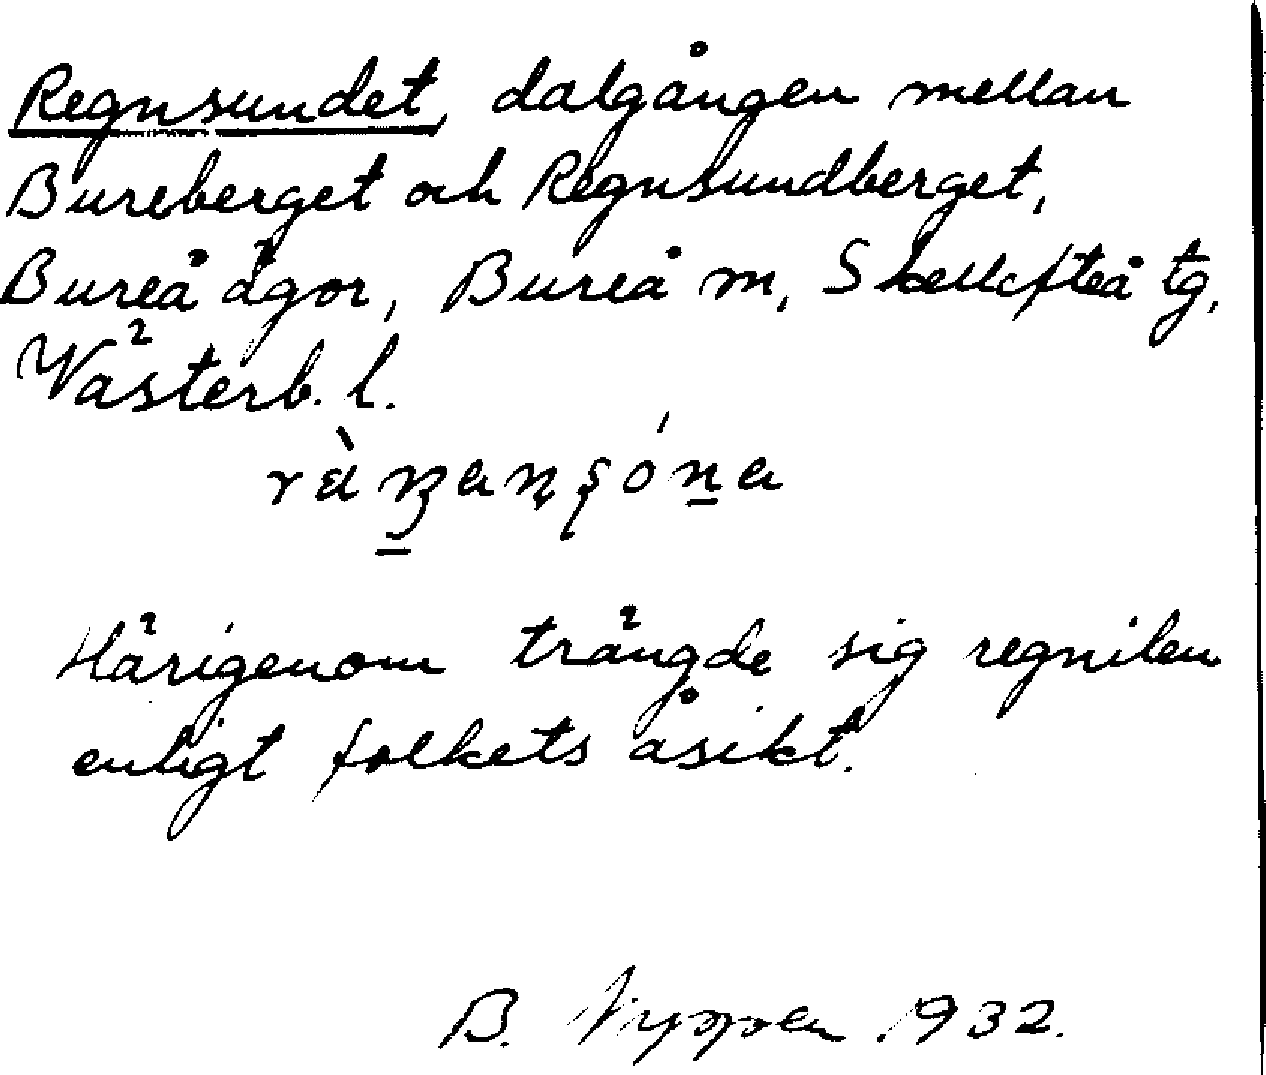 Regnsundet, dalgången mellan
Bureberget och Regnsundberget,
Bureå ägor, Bureå m, Skellefteå tg,
Västerb. l.
Härigenom trängde sig regnilen
enligt folkets åsikt.
B. 1932.